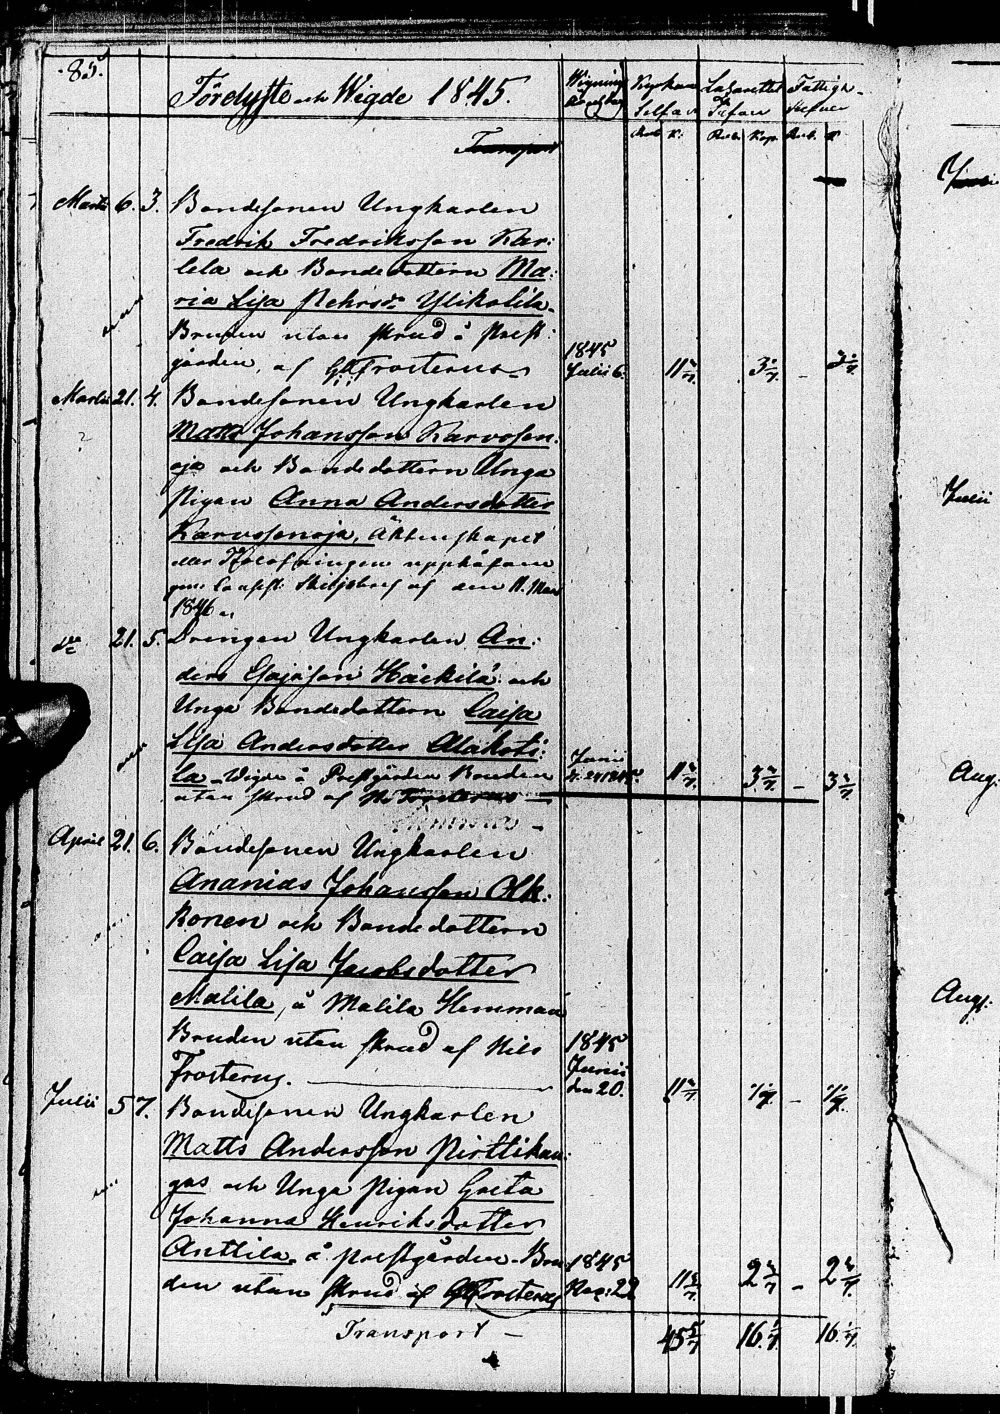 85.
Förlyste och Wigde 1845.
Wignings
Kyrkans Lazaretts Fattigh.
Transport
Martii 6. 3. Bondesonen Ungkarlen
Fredrik Fredriksson Kar:
lela och Bondedottern Ma:
ria Lisa Pehrsdr Ylikotila.
Bruden utan skrud å Prest:
gården, af Frosterus
1845
Julii 6.
11 3
Martii 21. 4. Bondesonen Ungkarlen
Matts Johansson Karvosen:
oja och Bondedottern Unga
Pigan Anna Andersdotter
Karvosenoja, Äktenskapet
eller Trolofningen upphäfven
genom Skiljobref af den 11. Mars
1846
21. 5. Drengen Ungkarlen An:
ders Esajasson Häikilä och
Unga Bondedottern Caisa
Lisa Andersdotter Alakoti:
la Wigde å Prestgården Bruden
utan skrud af Frosterus
Junii
24 1845.
11 3 3
April 21. 6. Bondesonen Ungkarlen
Ananias Johansson Olk:
konen och Bondedottern
Caisa Lisa Jacobsdotter
Malila, å Malila Hemman
Bruden utan skrud af Nils
Frosterus.
1845
Junii
den 20.
Julii 5 7. Bondesonen Ungkarlen
Matts Andersson Pirttikan:
gas och Unga Pigan Greta
Johanna Henriksdotter
Anttila, å prestgården. Bru
den utan skrud af Frosterus
1845
22
11 2/7 2 2/7 2 2/7
Transport
45 5/7 16 1/7 16 1/7
Julii
Aug.
Aug.